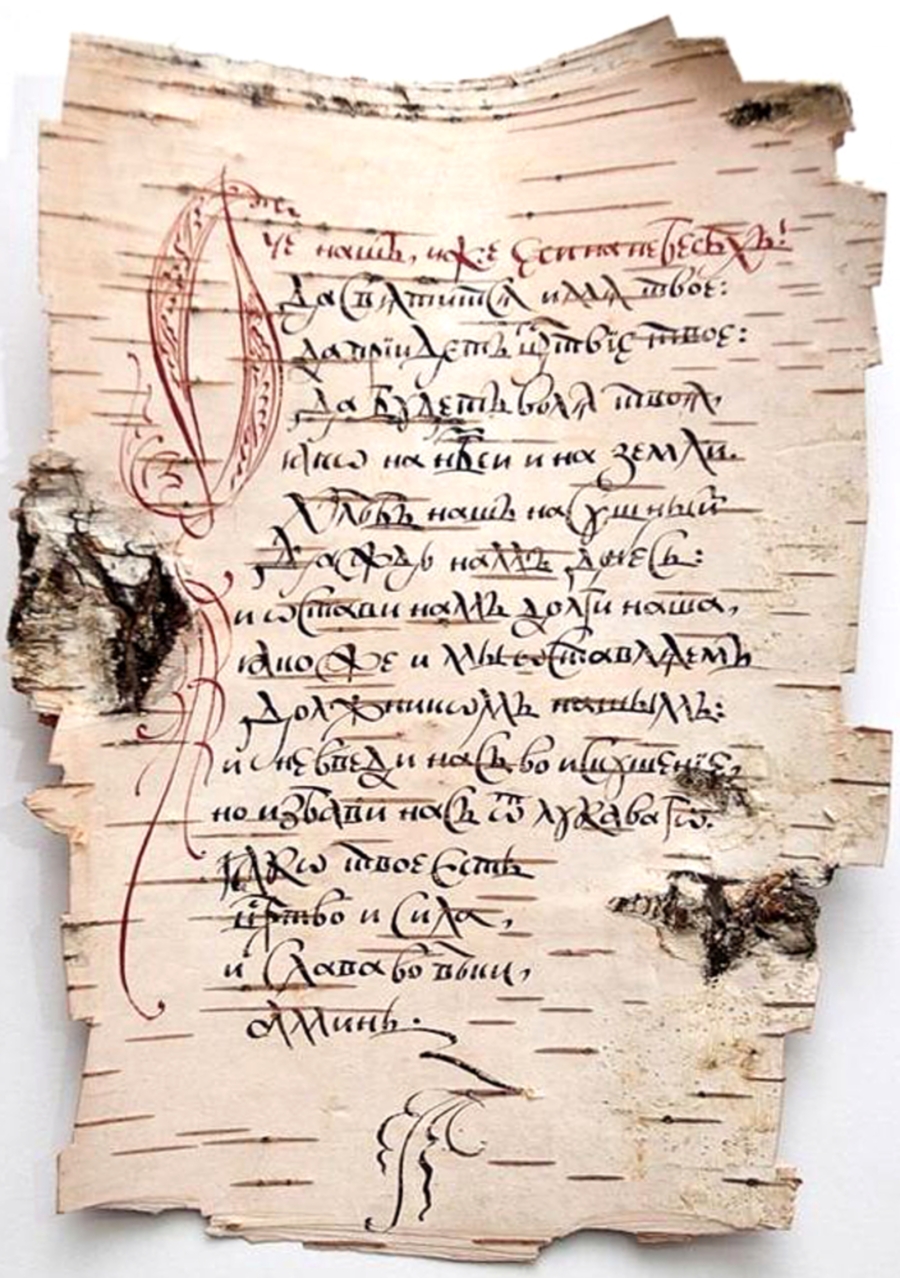 Ѻч҃е нашъ, иже еси на небесѣхъ!
да свѧтитсѧ имѧ твое:
да прїидетъ црⷭ҇твїе твое:
да бꙋдетъ волѧ твоѧ,
ꙗкѡ на нб҃си и на земли.
Хлѣбъ нашъ насꙋщный
даждь намъ днесь:
и ѡстави намъ долги наша,
ꙗкоже и мы ѡставлѧемъ
должникѡмъ нашымъ:
и не введи насъ во искꙋшенїе,
но избави насъ ѿ лꙋкавагѡ.
ꙗкѡ твое есть
црⷭ҇тво и сила,
и слава во вѣки,
аминь.